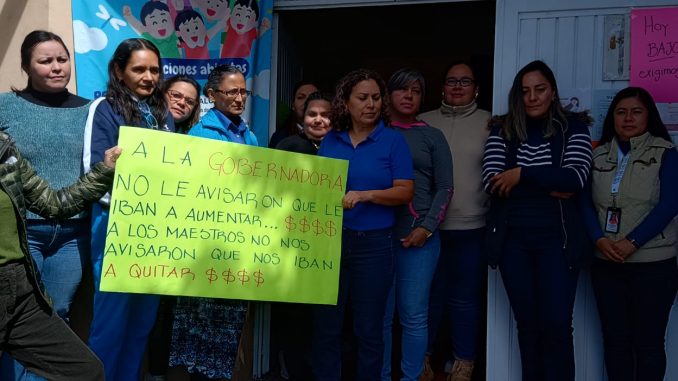 A LA GOBERNADORA
NO LE AVISARON QUE LE
IBAN A AUMENTAR... $$$$
A LOS MAESTROS NO NOS
AVISARON QUE NOS IBAN
A QUITAR $$$$
ciones abiertas
Hoy
BAJO
exigimo